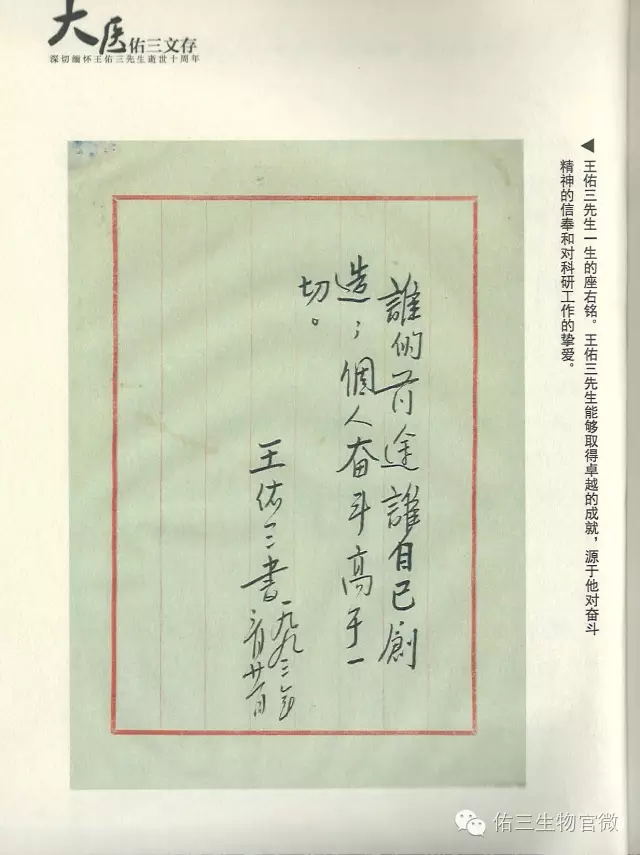 大医佑三文存
深切缅怀王佑三先生逝世十周年
◀王佑三先生一生的座右铭。王佑三先生能够取得卓越的成就，源于他对奋斗
精神的信奉和对科研工作的挚爱。
誰的前途誰自已創
造；個人奋斗高于一
切。
王佑三書
一九九三年
二月廿一日
佑三生物官微